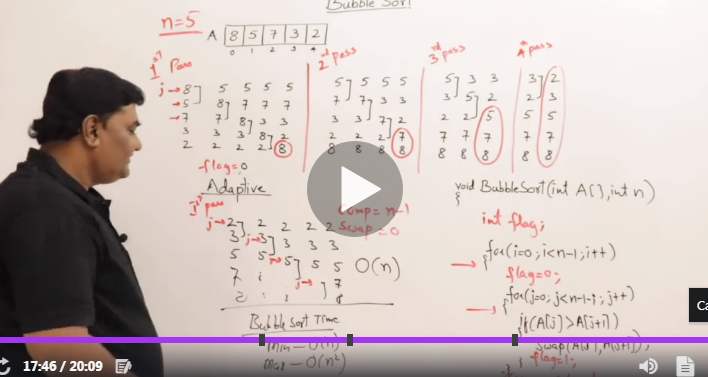 Bubble Sort
n=5
A 8 5 7 3 2
0 1 2 3 4
1st Pass
j→ 8 5 5 5 5
→ 5 8 7 7 7
→ 7 7 8 3 3
3 3 3 8 2
2 2 2 2 8
flag=0
2nd pass
5 5 5 5
7 7 3 3
3 3 7 2
2 2 2 7
8 8 8 8
3rd pass
5 3 3
3 5 2
2 2 5
7 7 7
8 8 8
4th pass
3 2
2 3
5 5
7 7
8 8
Adaptive
1st pass
j→ 2 2 2 2 2
3 j→ 3 3 3 3
5 5 j→ 5 5 5
7 j→ 7
8
Comp = n-1
Swap = 0
O(n)
Bubble Sort Time
Min – O(n)
Max – O(n²)
void BubbleSort(int A[], int n)
{
int flag;
→ for(i=0; i<n-1; i++)
{ flag=0;
→ for(j=0; j<n-1-i; j++)
{ if(A[j]>A[j+1])
swap(A[j], A[j+1]);
flag=1;
17:46 / 20:09
Ca